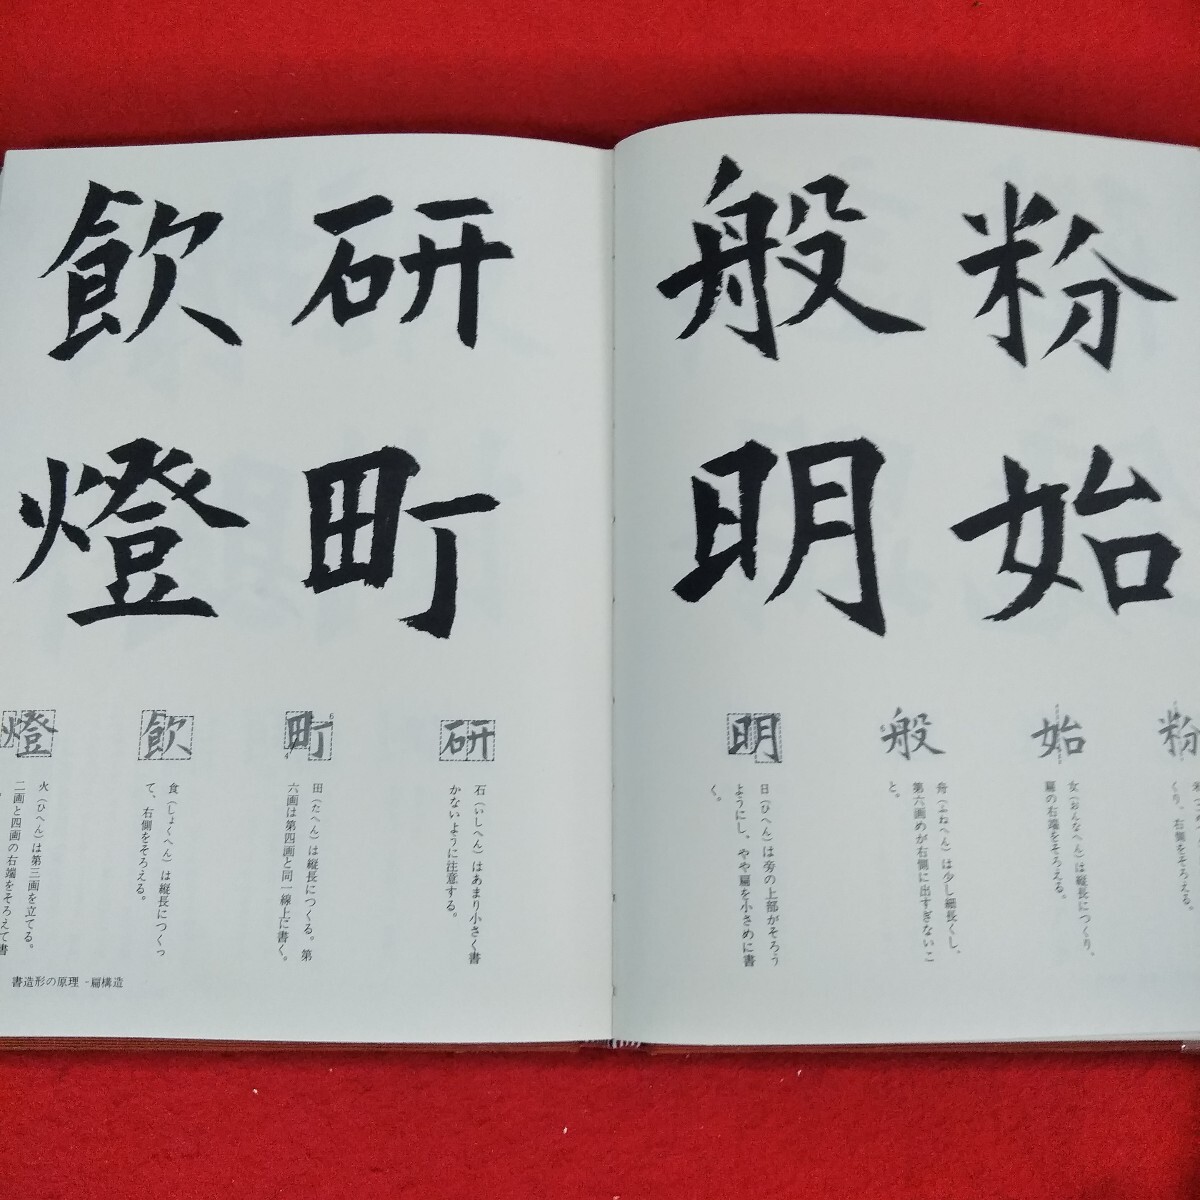 粉
始
般
明
研
町
飲
燈
粉
くり、右側をそろえる。
始
女(おんなへん)は縦長につくり、
扁の右端をそろえる。
般
舟(ふねへん)は少し細長くし、
第六画めが右側に出すぎないこ
と。
明
日(ひへん)は旁の上部がそろう
ようにし、やや扁を小さめに書
く。
研
石(いしへん)はあまり小さく書
かないように注意する。
町
4
6
田(たへん)は縦長につくる。第
六画は第四画と同一線上に書く。
飲
食(しょくへん)は縦長につくっ
て、右側をそろえる。
燈
火(ひへん)は第三画を立てる。
二画と四画の右端をそろえて書
書造形の原理-扁構造